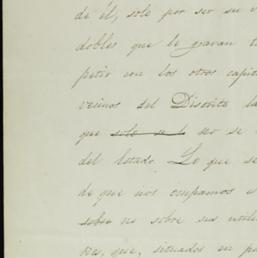 de él, solo por ser su v
dobles que le gravan t
petir con los otros capit
vecinos del Distrito la
que solo se l no se
del Estado. Lo que se
de que nos ocupamos e
sobre no sobre sus utili
res, que, situados en p